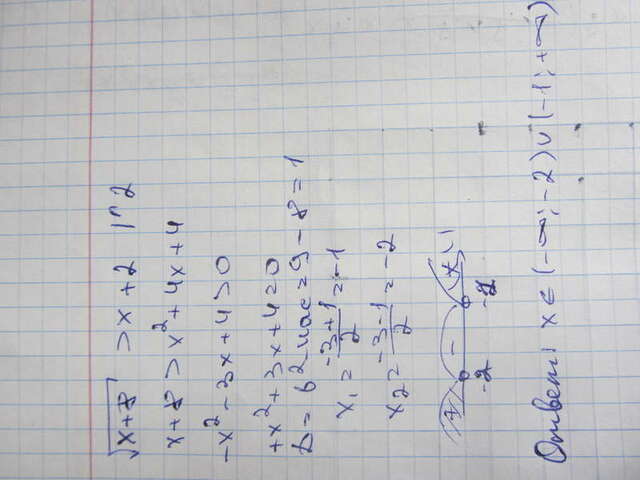 √x+8 > x+2 |^2
x+8 > x²+4x+4
-x²-3x+4>0
+x²+3x+4=0
D=b²-4ac=9-8=1
x₁ = -3+1/2 = -1
x₂ = -3-1/2 = -2
+ - +
-2 -1
Ответ: x∈(-∞;-2)∪(-1;+∞)